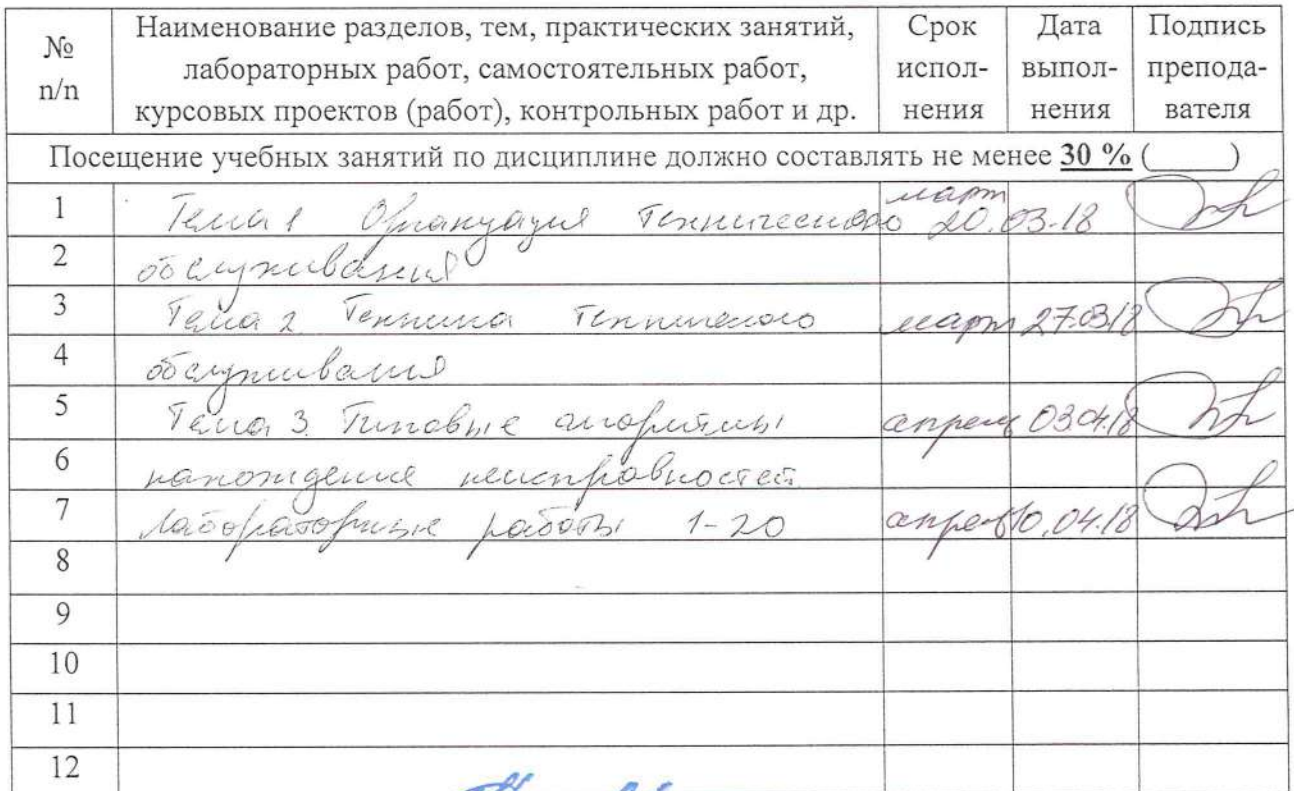 № п/п Наименование разделов, тем, практических занятий, лабораторных работ, самостоятельных работ, курсовых проектов (работ), контрольных работ и др. Срок испол- нения Дата выпол- нения Подпись препода- вателя
Посещение учебных занятий по дисциплине должно составлять не менее 30 % (______)
1 Тема 1 Организация технического март 20.03.18
2 обслуживания
3 Тема 2 Техника технического март 27.03.18
4 обслуживания
5 Тема 3. Типовые алгоритмы апрель 03.04.18
6 нахождение неисправностей.
7 Лабораторные работы 1-20 апрель 10.04.18
8
9
10
11
12